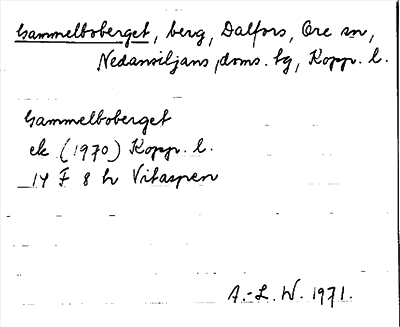 Gammelboberget, berg, Dalfors, Ore sn,
Nedansiljans doms. tg, Kopp. l.
Gammelboberget
ek (1970) Kopp. l.
14 F 8 h Vitaspen
A.-L. W. 1971.